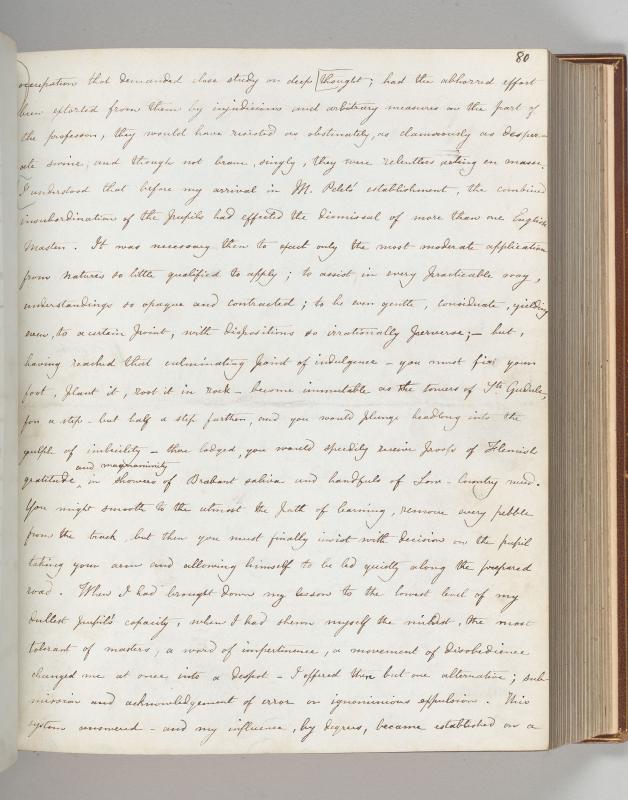 80
occupation that demanded close study or deep thought; had the abhorred effort
been extorted from them by injudicious and arbitrary measures on the part of
the professor, they would have resisted as obstinately, as clamorously as desper-
ate swine; and though not brave, singly, they were relentless acting en masse.
I understood that before my arrival in M. Pelet's establishment, the combined
insubordination of the Pupils had effected the dismissal of more than one English
Master. It was necessary then to exact only the most moderate application
from natures so little qualified to apply; to assist, in every practicable way,
understandings so opaque and contracted; to be ever gentle, considerate, yielding
even, to a certain point, with dispositions so irrationally perverse; – but,
having reached that culminating point of indulgence – you must fix your
foot, plant it, root it in rock – become immutable as the towers of Ste Gudule,
for a step – but half a step farther, and you would plunge headlong into the
gulph of imbecility – there lodged, you would speedily receive proofs of Flemish
and magnanimity
gratitude, in showers of Brabant saliva and handfuls of Low-Country mud.
You might smooth to the utmost the path of learning, remove every pebble
from the track, but then you must finally insist with decision on the pupil
taking your arm and allowing himself to be led quietly along the prepared
road. When I had brought down my lesson to the lowest level of my
dullest Pupil's capacity, when I had shewn myself the mildest, the most
tolerant of masters, a word of impertinence, a movement of disobedience
changed me at once into a despot – I offered then but one alternative; sub-
mission and acknowledgement of error or ignominious expulsion. This
system answered – and my influence, by degrees, became established on a